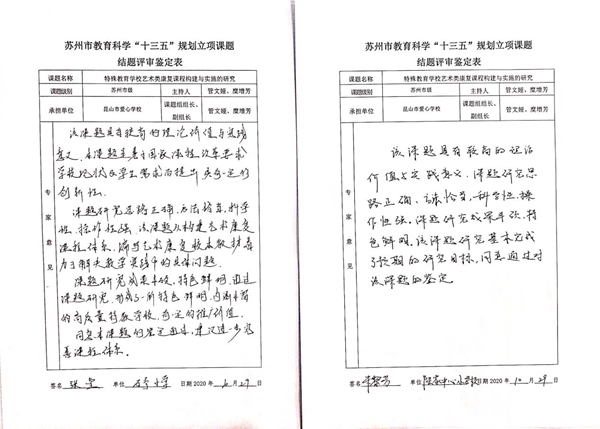 苏州市教育科学“十三五”规划立项课题
结题评审鉴定表
课题名称 特殊教育学校艺术类康复课程构建与实施的研究
课题级别 苏州市级 主持人 管文娅、糜增芳
承担单位 昆山市爱心学校 课题组组长、副组长 管文娅、糜增芳
专家意见
该课题具有较高的理论价值与实践
意义,本课题是基于国家课程改革要求
学校现状及学生需求而提出 具有一定的
创新性。
课题研究思路正确,方法恰当,科学
性、操作性强,该课题从构建艺术康复
课程体系,
力于解决教学实践中的具体问题。
课题研究成果丰硕,特色鲜明,通过
课题研究,形成了一所特色鲜明,
的高质量特教学校,有一定的推广价值。
同意本课题的鉴定通过,建议进一步完
善课程体系。
签名 单位 大学 日期 2020 年 月 27 日
苏州市教育科学“十三五”规划立项课题
结题评审鉴定表
课题名称 特殊教育学校艺术类康复课程构建与实施的研究
课题级别 苏州市级 主持人 管文娅、糜增芳
承担单位 昆山市爱心学校 课题组组长、副组长 管文娅、糜增芳
专家意见
该课题具有较高的理论
价值与实践意义。课题研究思
路正确、方法恰当,科学性、操
作性强。课题研究成果丰硕,特
色鲜明。该课题研究基本完成
了预期的研究目标,同意通过对
该课题的鉴定
签名 单位 中心小学校 日期 2020 年 10 月 29 日